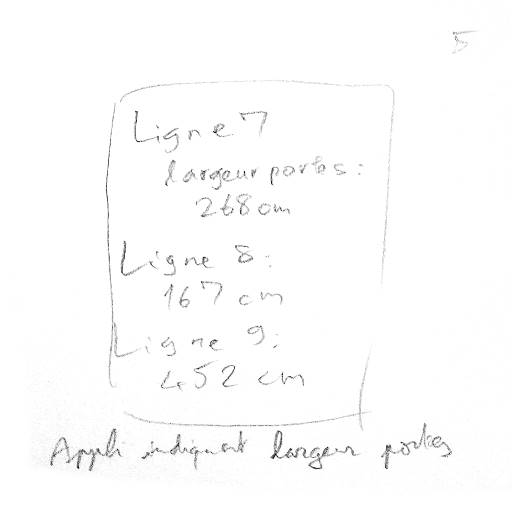 5
Ligne 7
largeur portes :
268 cm
Ligne 8 :
167 cm
Ligne 9 :
452 cm
Appli indiquant largeur portes